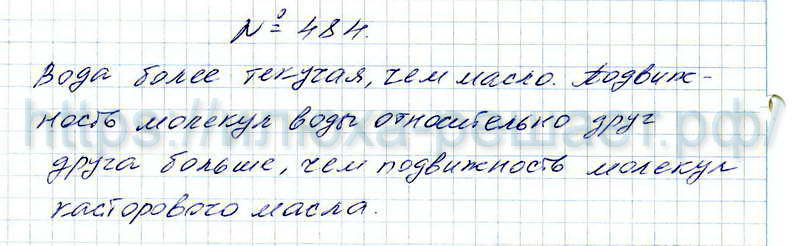 № 484.
Вода более текучая, чем масло. Подвиж-
ность молекул воды относительно друг
друга больше, чем подвижность молекул
касторового масла.